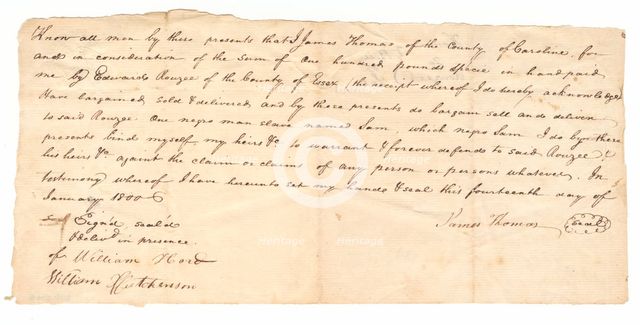 Know all men by these presents that I James Thomas of the County of Caroline for
and in consideration of the Sum of One hundred pounds Specie in hand paid
me by Edward Rouzee of the County of Essex (the receipt whereof I do hereby acknowledge)
Have bargained sold & delivered and by these presents do bargain sell and deliver
to said Rouzee One negro man slave named Sam, which negro Sam I do by these
presents bind myself my heirs &c to warrant & forever defend to said Rouzee &
his heirs &c against the claim or claims of any person or persons whatever. In
testimony whereof I have hereunto set my hand & seal this fourteenth day of
January 1800
James Thomas Seal
Sign'd, seal'd
& deliv'd in presence
of William Hord
William Hutcherson
Heritage
Heritage
Heritage